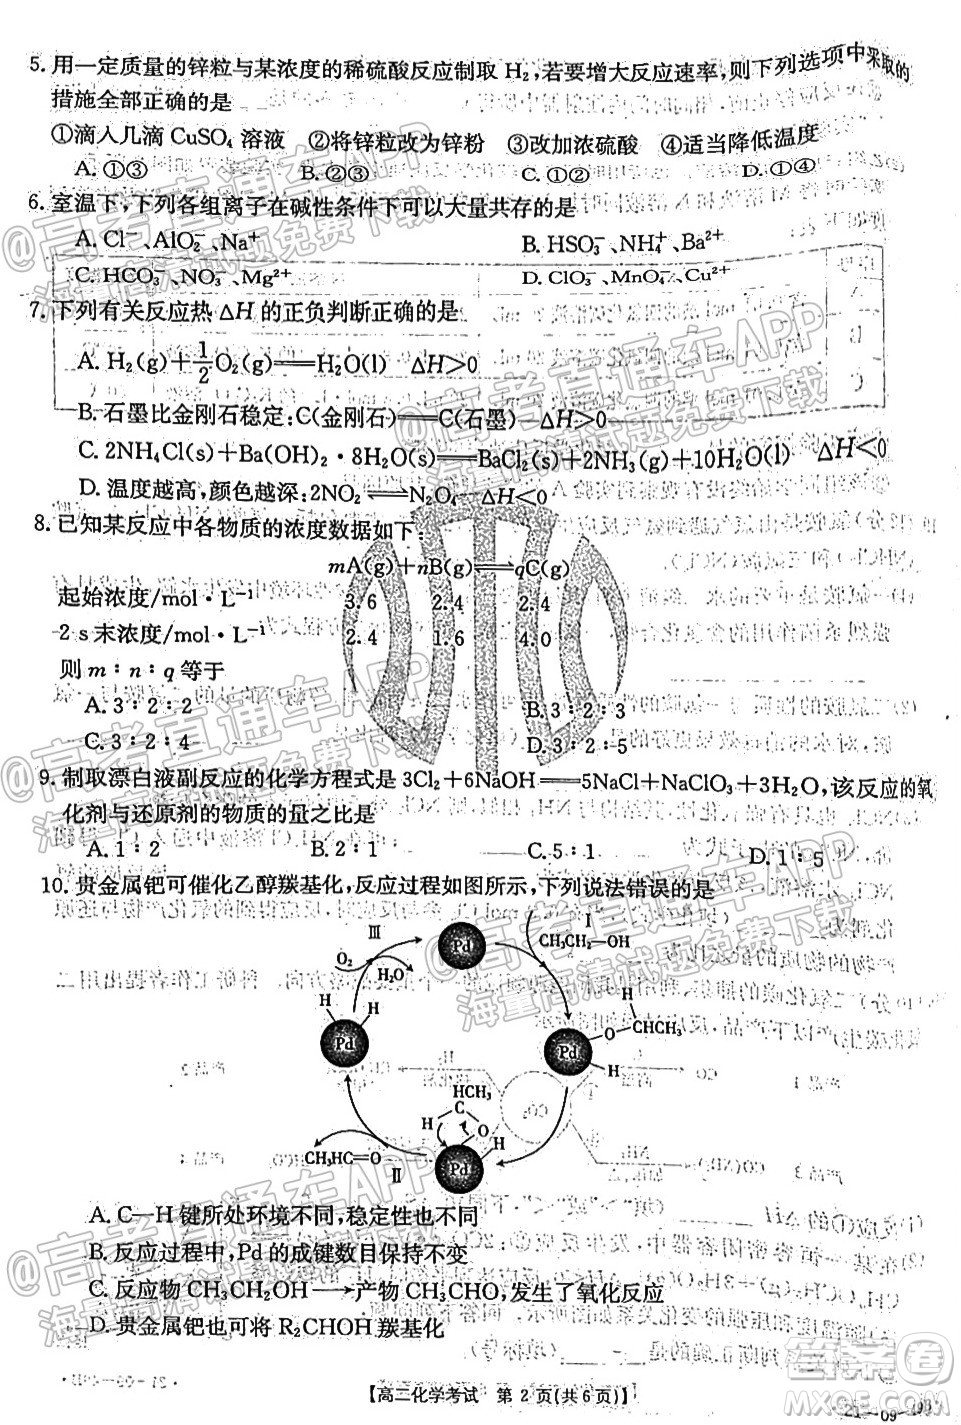 5. 用一定质量的锌粒与某浓度的稀硫酸反应制取 H₂,若要增大反应速率,则下列选项中采取的
措施全部正确的是
①滴入几滴 CuSO₄ 溶液 ②将锌粒改为锌粉 ③改加浓硫酸 ④适当降低温度
A. ①③ B. ②③ C. ①② D. ①④
6. 室温下,下列各组离子在碱性条件下可以大量共存的是
A. Cl⁻、AlO₂⁻、Na⁺ B. HSO₃⁻、NH₄⁺、Ba²⁺
C. HCO₃⁻、NO₃⁻、Mg²⁺ D. ClO₃⁻、MnO₄⁻、Cu²⁺
7. 下列有关反应热 ΔH 的正负判断正确的是
A. H₂(g)+1/2O₂(g)══H₂O(l) ΔH>0
B. 石墨比金刚石稳定:C(金刚石)══C(石墨) ΔH>0
C. 2NH₄Cl(s)+Ba(OH)₂·8H₂O(s)══BaCl₂(s)+2NH₃(g)+10H₂O(l) ΔH<0
D. 温度越高,颜色越深:2NO₂⇌N₂O₄ ΔH<0
8. 已知某反应中各物质的浓度数据如下:
mA(g)+nB(g)⇌qC(g)
起始浓度/mol·L⁻¹ 3.6 2.4 2.4
2 s 末浓度/mol·L⁻¹ 2.4 1.6 4.0
则 m∶n∶q 等于
A. 3∶2∶2 B. 3∶2∶3
C. 3∶2∶4 D. 3∶2∶5
9. 制取漂白液副反应的化学方程式是 3Cl₂+6NaOH══5NaCl+NaClO₃+3H₂O,该反应的氧
化剂与还原剂的物质的量之比是
A. 1∶2 B. 2∶1 C. 5∶1 D. 1∶5
10. 贵金属钯可催化乙醇羰基化,反应过程如图所示,下列说法错误的是
Ⅲ
Pd
Ⅰ
CH₃CH₂—OH
O₂
H₂O
H
H
Pd
H
O
CHCH₃
Pd
H
CH₃CHO
Ⅱ
HCH₃
H
C
O
H
Pd
A. C—H 键所处环境不同,稳定性也不同
B. 反应过程中,Pd 的成键数目保持不变
C. 反应物 CH₃CH₂OH ⟶ 产物 CH₃CHO,发生了氧化反应
D. 贵金属钯也可将 R₂CHOH 羰基化
【高二化学考试 第 2 页(共 6 页)】
@高考直通车APP
海量高清试题免费下载
答案圈